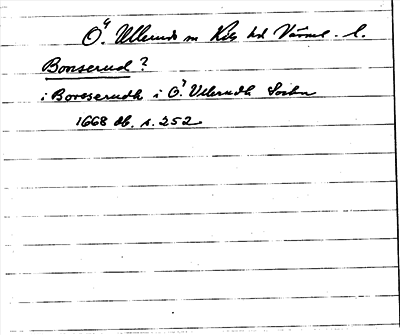 Ö. Ullerud sn Kils hd Värml. l.
Bonserud?
i Boreserudh i Ö. Ullerudh Sochn
1668 db. s. 252